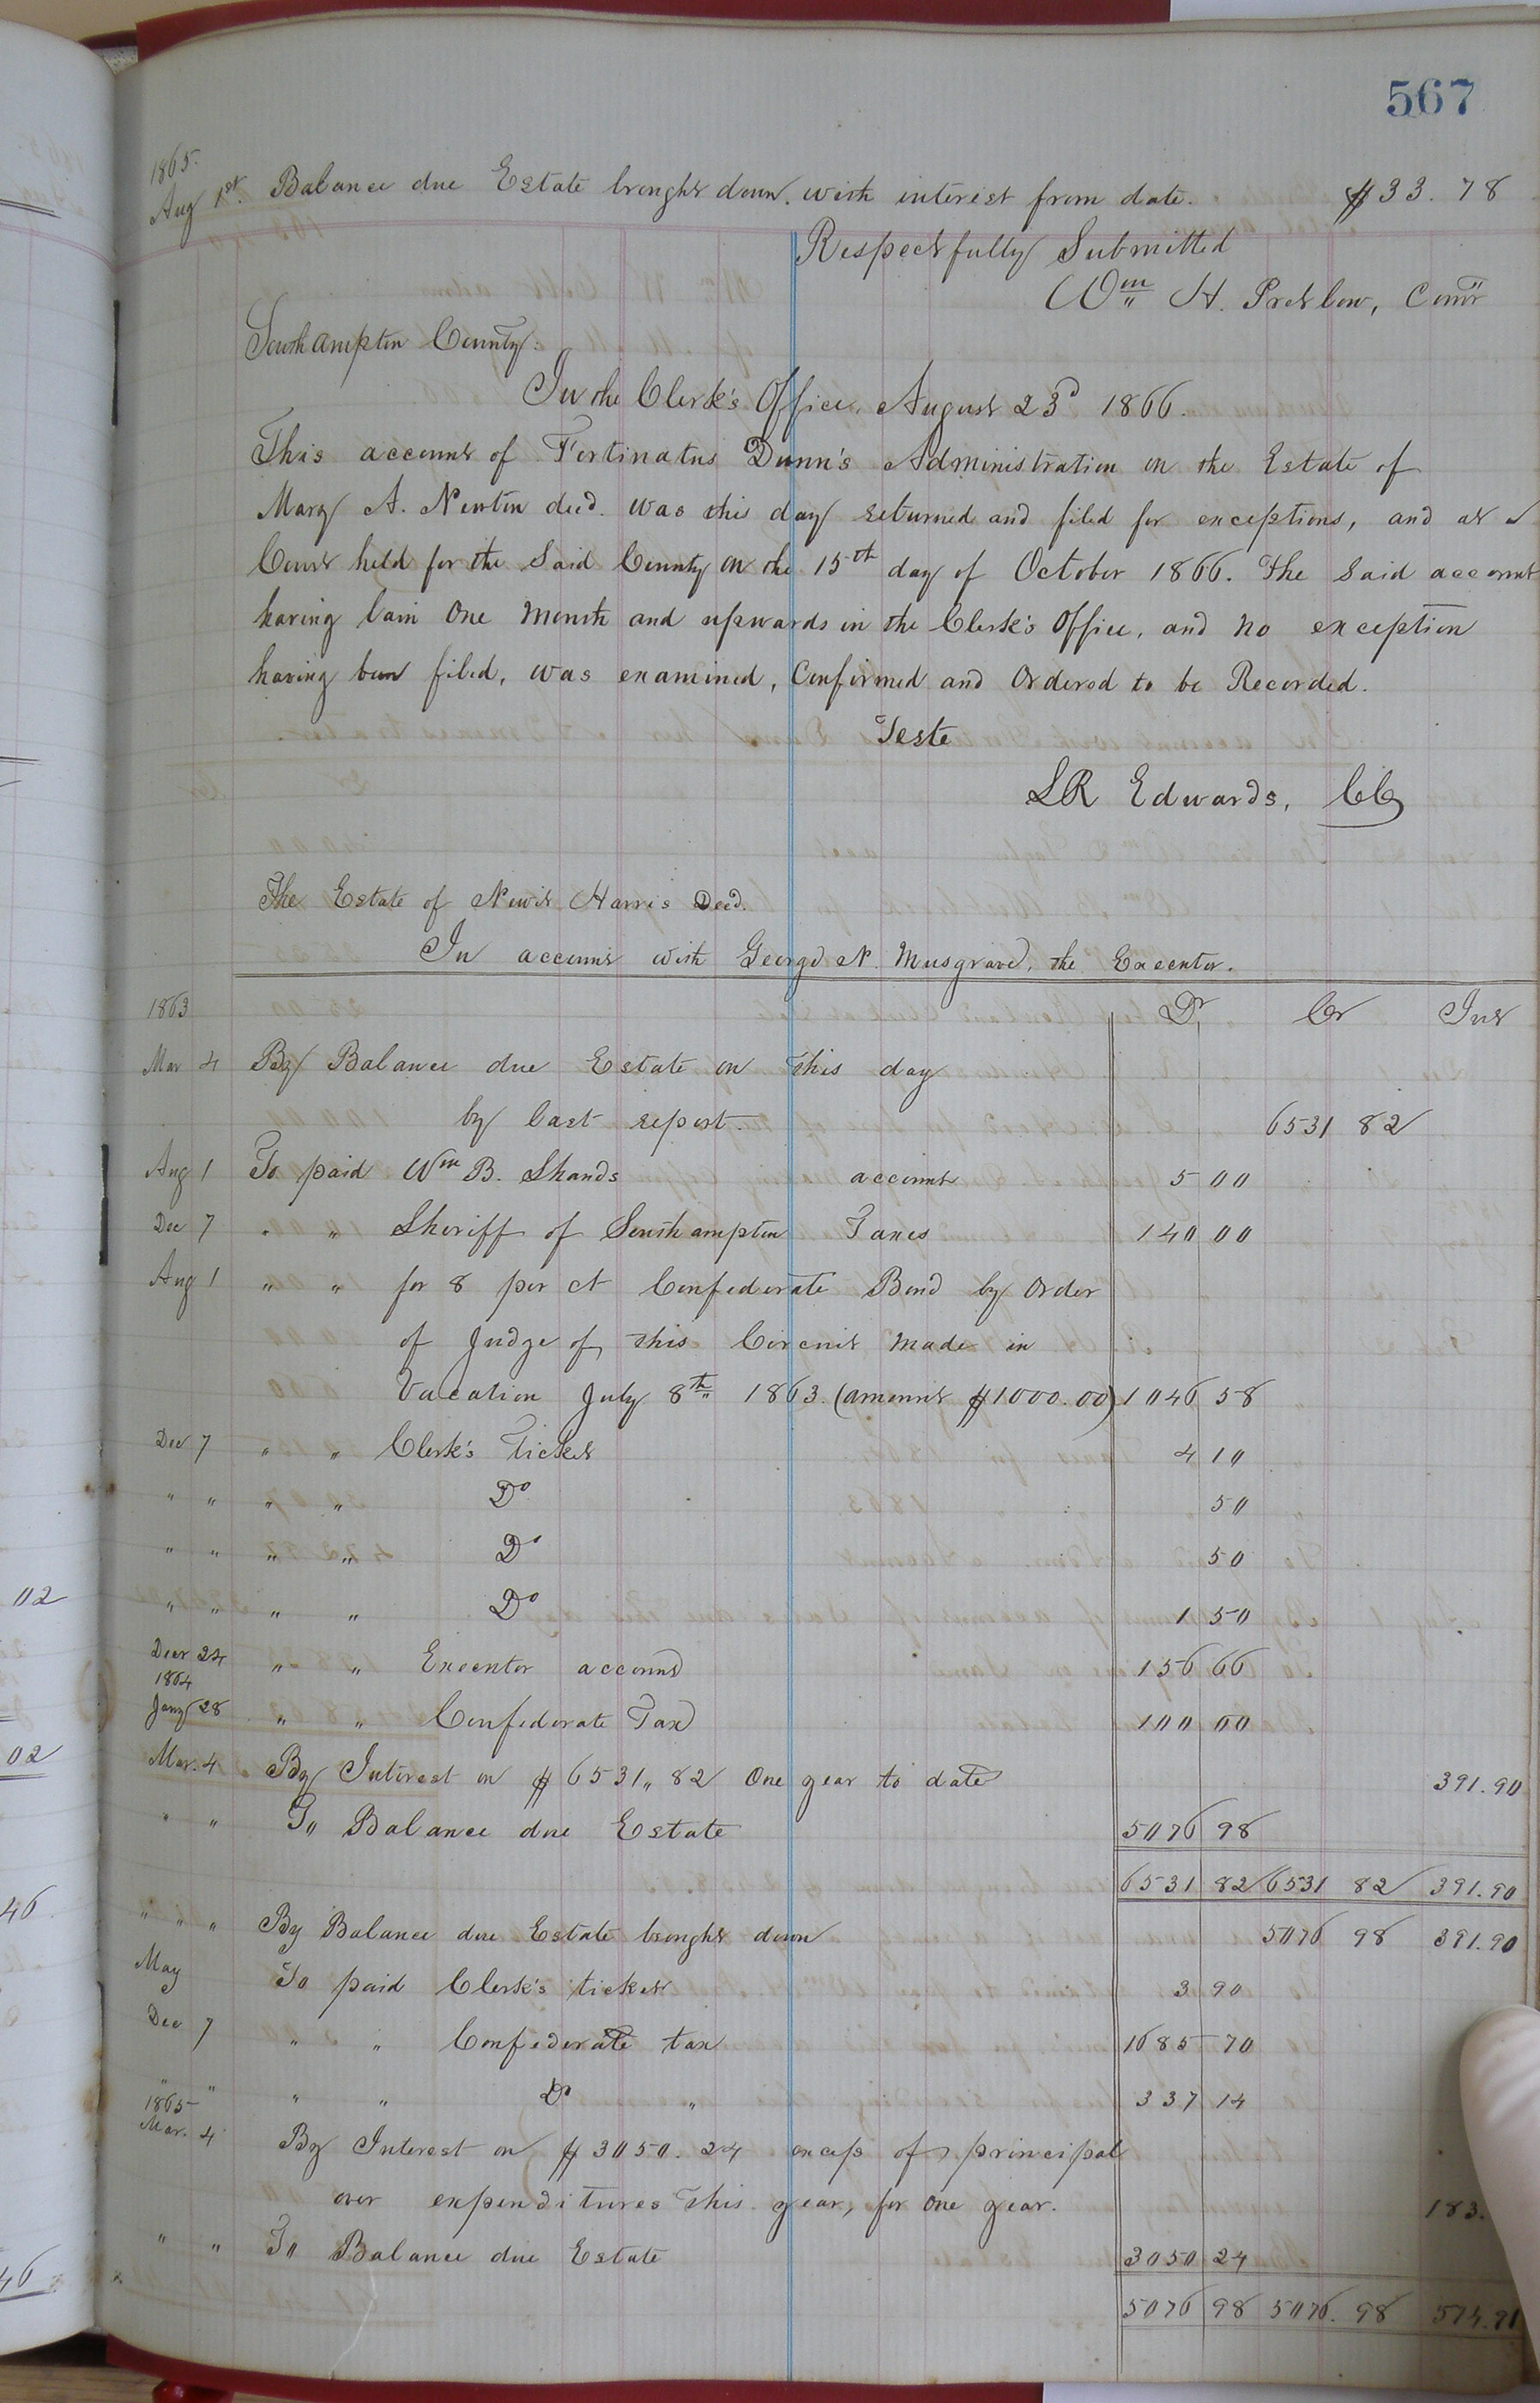 567
1865.
Aug 1st. Balance due Estate brought down. with interest from date. $33.78
Respectfully Submitted
Wm H. Pretlow, Comr
Southampton County.
In the Clerk's Office, August 23d 1866.
This account of Fortinatus Dunn's Administration on the Estate of
Mary A. Newton decd. was this day returned and filed for exceptions, and at a
Court held for the Said County on the 15th day of October 1866. The Said account
having lain One Month and upwards in the Clerk's Office, and no exception
having been filed, was examined, Confirmed and Ordered to be Recorded.
Teste
LR Edwards, CC
The Estate of Newit Harris Decd.
In account with George N. Musgrave, the Executor.
1863 Dr Cr Int
Mar 4 By Balance due Estate on this day
by last report. 6531 82
Aug 1 To paid Wm B. Shands account 5 00
Dec 7 " " Sheriff of Southampton Taxes 140 00
Aug 1 " " for 8 per ct Confederate Bond by Order
of Judge of this Circuit Made in
Vacation July 8th 1863. (amount $1000.00) 1046 58
Dec 7 " " Clerk's Ticket 4 10
" " " " Do 50
" " " " Do 50
" " " " Do 1 50
Decr 24 " " Executor account 156 66
1864
Jany 28 " " Confederate Tax 100 00
Mar. 4 By Interest on $6531,,82 One year to date 391.90
" " To Balance due Estate 5076 98
6531 82 6531 82 391.90
" " " By Balance due Estate brought down 5076 98 391.90
May To paid Clerk's ticket 3 90
Dec 7 " " Confederate tax 1685 70
" " " " Do " 337 14
1865
Mar. 4 By Interest on $3050.24 excess of principal
over expenditures this year, for one year. 183.
" " To Balance due Estate 3050 24
5076 98 5076.98 574.91
02
02
46
46